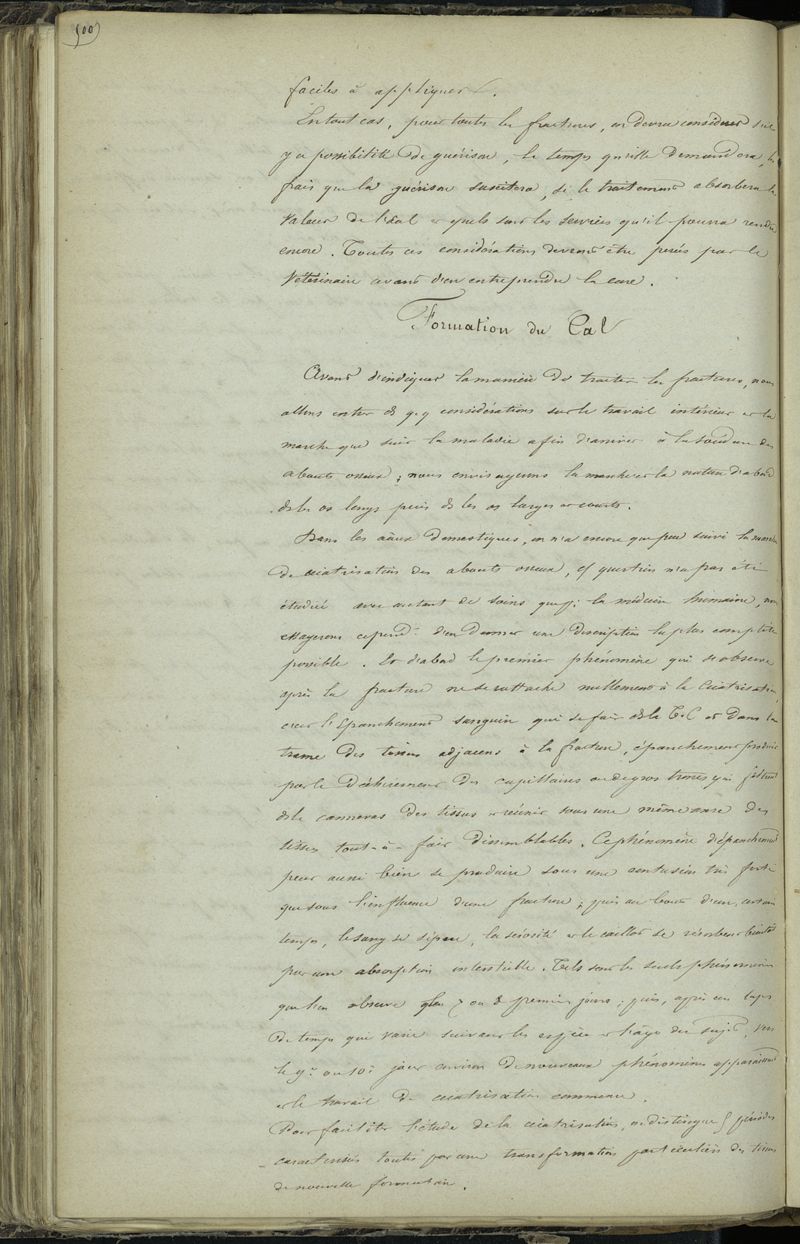 500
faciles à appliquer.
En tout cas, pour toutes les fractures, on devra considérer s'il
y a possibilité de guérison, le temps qu'elle demandera, les
frais que la guérison suscitera, si le traitement absorbera la
valeur de l'al et quels sont les services qu'il pourra rendre
encore. Toutes ces considérations devront être pesées par le
Vétérinaire avant d'en entreprendre la cure.
Formation du Cal
Avant d'indiquer la manière de traiter les fractures, nous
allons entrer ds qq considérations sur le travail intérieur et la
marche que suit la maladie afin d'arriver à la soudure des
abouts osseux ; nous envisagerons la marche et la nature d'abord
ds les os longs puis ds les os larges et courts.
Dans les aaux domestiques, on n'a encore que peu suivi la marche
de cicatrisation des abouts osseux, cette question n'a pas été
étudiée avec autant de soins que la médecine humaine, nous
essayerons cepend.t d'en donner une description la plus complète
possible. Et d'abord le premier phénomène qui s'observe
après la fracture ne se rattache nullement à la cicatrisation,
c'est l'épanchement sanguin qui se fait ds le T.C et dans la
trame des tissus adjacens à la fracture, épanchement produit
par le déchirement des capillaires ou de gros troncs qui
ds le canevas des tissus et réunit sous une même masse des
tissus tout-à-fait dissemblables. Ce phénomène d'épanchement
peut aussi bien se produire sous une contusion très forte
que sous l'influence d'une fracture ; puis au bout d'un certain
temps, le sang se sépare, la sérosité et le caillot se résorbent bientôt
par une absorption interstitielle. Tels sont les seuls phénomènes
que l'on observe les 7 ou 8 premiers jours ; puis, après un laps
de temps qui varie suivant les espèces et l'âge du sujet, vers
le 9e ou 10e jour environ de nouveaux phénomènes apparaissent
et le travail de cicatrisation commence.
Pour faciliter l'étude de la cicatrisation, on distingue 5 périodes
caractérisées toutes par une transformation particulière des tissus
de nouvelle formation.